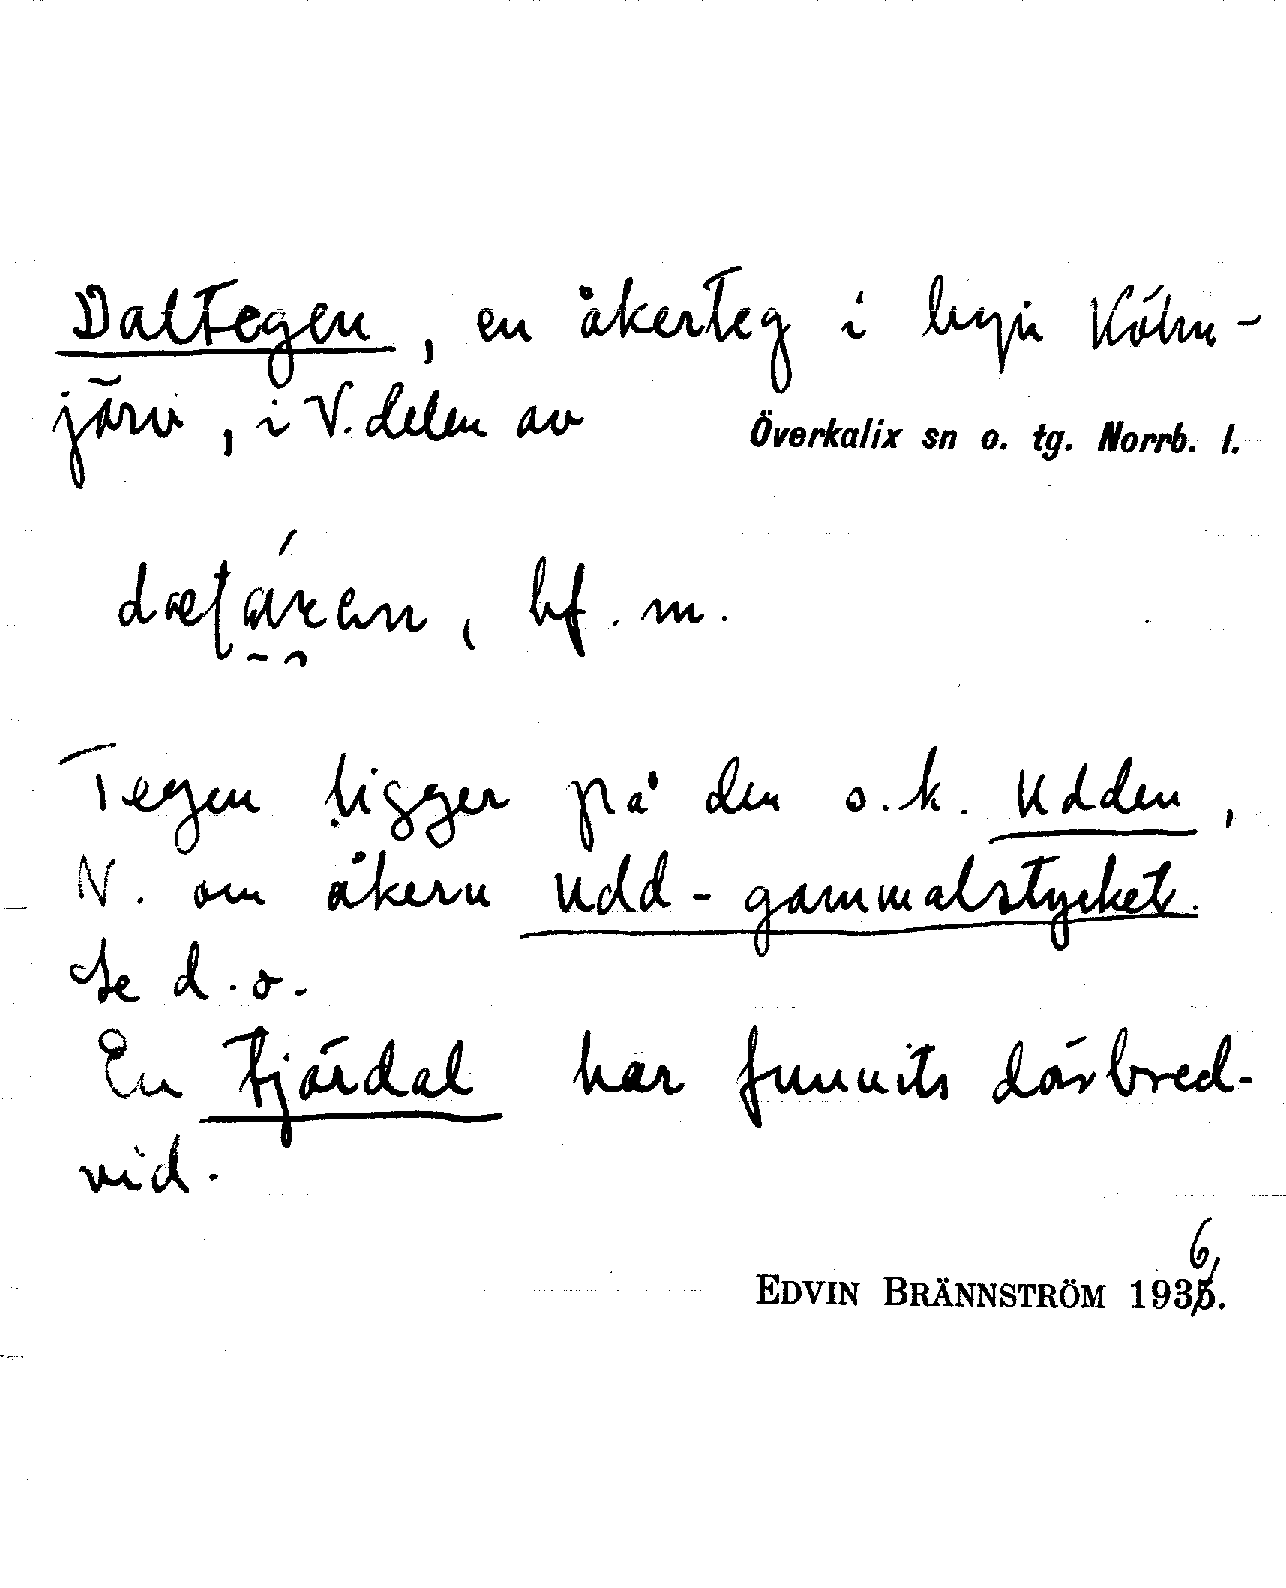 Daltegen, en åkerteg i byn Kölm-
järv, i V. delen av Överkalix sn o. tg. Norrb. l.
bf. m.
Tegen ligger på den o.k. Udden,
N. om åkern Udd-gammalstycket.
Se d.o.
En tjärdal har funnits därbred-
vid.
6
EDVIN BRÄNNSTRÖM 1935.